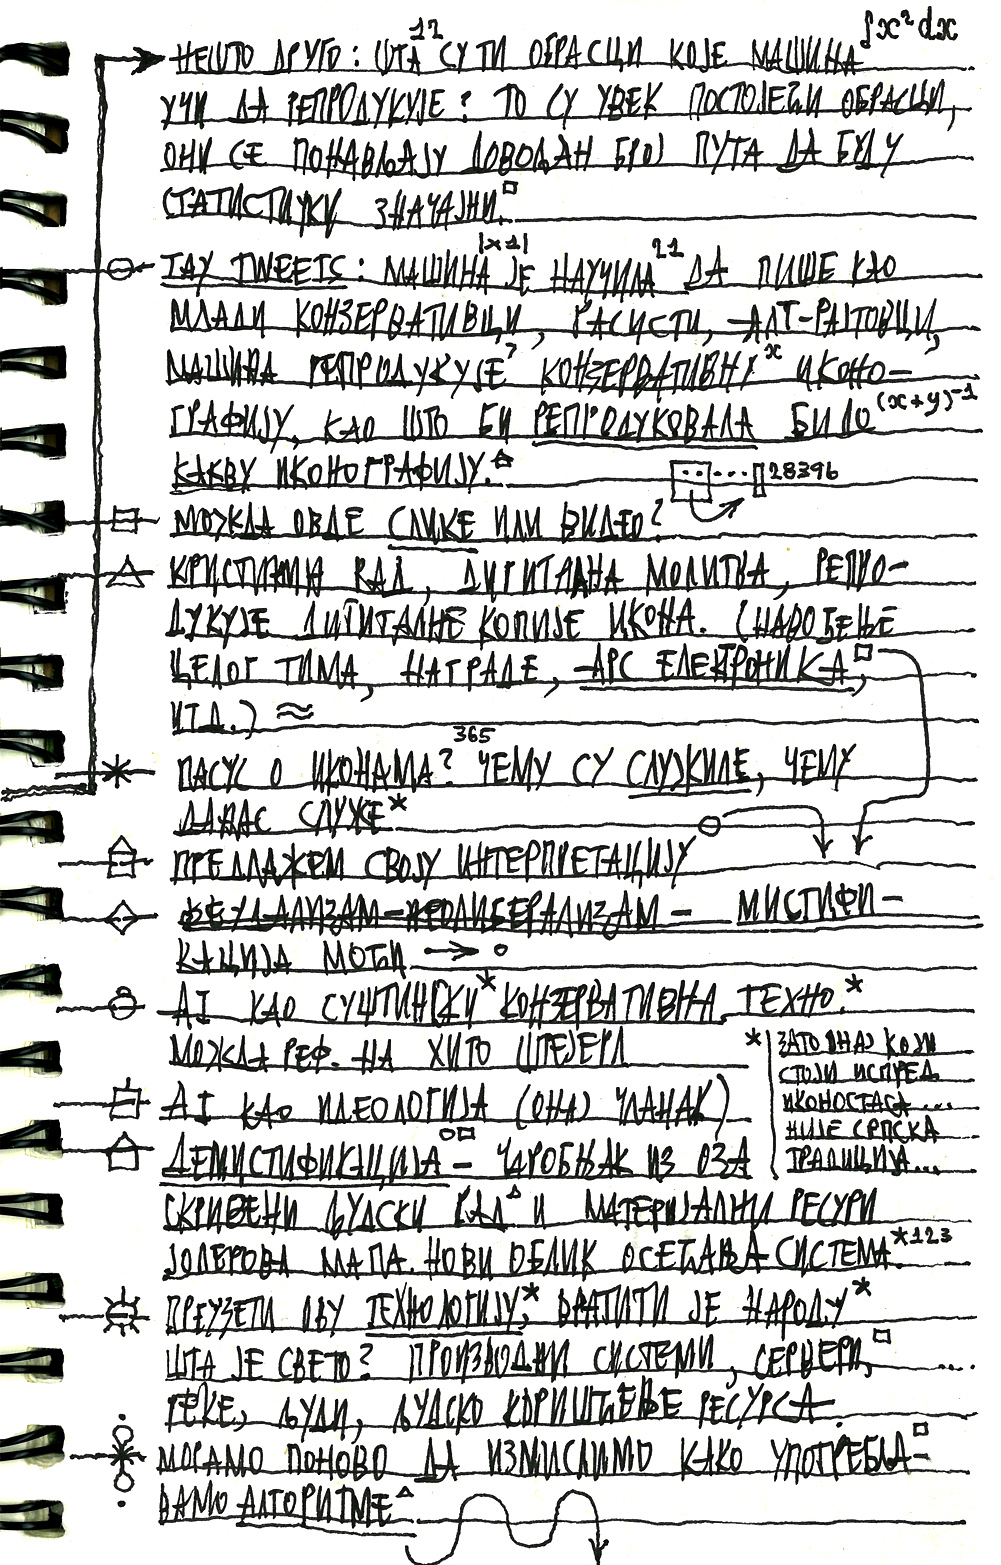 ∫x²dx
НЕШТО ДРУГО: ШТА¹² СУ ТИ ОБРАСЦИ КОЈЕ МАШИНА
УЧИ ДА РЕПРОДУКУЈЕ? ТО СУ УВЕК ПОСТОЈЕЋИ ОБРАСЦИ,
ОНИ СЕ ПОНАВЉАЈУ ДОВОЉАН БРОЈ ПУТА ДА БУДУ
СТАТИСТИЧКИ ЗНАЧАЈНИ.
TAY TWEETS: МАШИНА |x1| ЈЕ НАУЧИЛА²¹ ДА ПИШЕ КАО
МЛАДИ КОНЗЕРВАТИВЦИ, РАСИСТИ, АЛТ-РАЈТОВЦИ,
МАШИНА РЕПРОДУКУЈЕ? КОНЗЕРВАТИВНУ x ИКОНО-
ГРАФИЈУ, КАО ШТО БИ РЕПРОДУКОВАЛА БИЛО (x+y)⁻¹
КАКВУ ИКОНОГРАФИЈУ.
28396
МОЖДА ОВДЕ СЛИКЕ ИЛИ ВИДЕО?
РАД, ДИГИТАЛНА МОЛИТВА, РЕПРО-
ДУКУЈЕ ДИГИТАЛНЕ КОПИЈЕ ИКОНА. (НАВОЂЕЊЕ
ЦЕЛОГ ТИМА, НАГРАДЕ, АРС ЕЛЕКТРОНИКА,
ИТД.) ≈
ПАСУС О ИКОНАМА?³⁶⁵ ЧЕМУ СУ СЛУЖИЛЕ, ЧЕМУ
ДАНАС СЛУЖЕ*
ПРЕДЛАЖЕМ СВОЈУ ИНТЕРПРЕТАЦИЈУ
ФЕУДАЛИЗАМ-НЕОЛИБЕРАЛИЗАМ - МИСТИФИ-
КАЦИЈА МОЋИ → °
AI КАО СУШТИНСКИ* КОНЗЕРВАТИВНА ТЕХНО.*
МОЖДА РЕФ. НА ХИТО ШТЕЈЕРЛ
* ЗАТО ОНАЈ КОЈИ
СТОЈИ ИСПРЕД
ИКОНОСТАСА...
НИЈЕ СРПСКА
ТРАДИЦИЈА...
AI КАО ИДЕОЛОГИЈА (ОНАЈ ЧЛАНАК)
ДЕМИСТИФИКАЦИЈА - ЧАРОБЊАК ИЗ ОЗА
СКРИВЕНИ ЉУДСКИ РАД И МАТЕРИЈАЛНИ РЕСУРИ
ЈОЛЕРОВА МАПА. НОВИ ОБЛИК ОСЕЋАЊА СИСТЕМА.*¹²³
ПРЕУЗЕТИ ОВУ ТЕХНОЛОГИЈУ,* ВРАТИТИ ЈЕ НАРОДУ*
ШТА ЈЕ СВЕТО? ПРОИЗВОДНИ СИСТЕМИ, СЕРВЕРИ, ....
РЕКЕ, ЉУДИ, ЉУДСКО КОРИШЋЕЊЕ РЕСУРСА.
МОРАМО ПОНОВО ДА ИЗМИСЛИМО КАКО УПОТРЕБЉА-
ВАМО АЛГОРИТМЕ